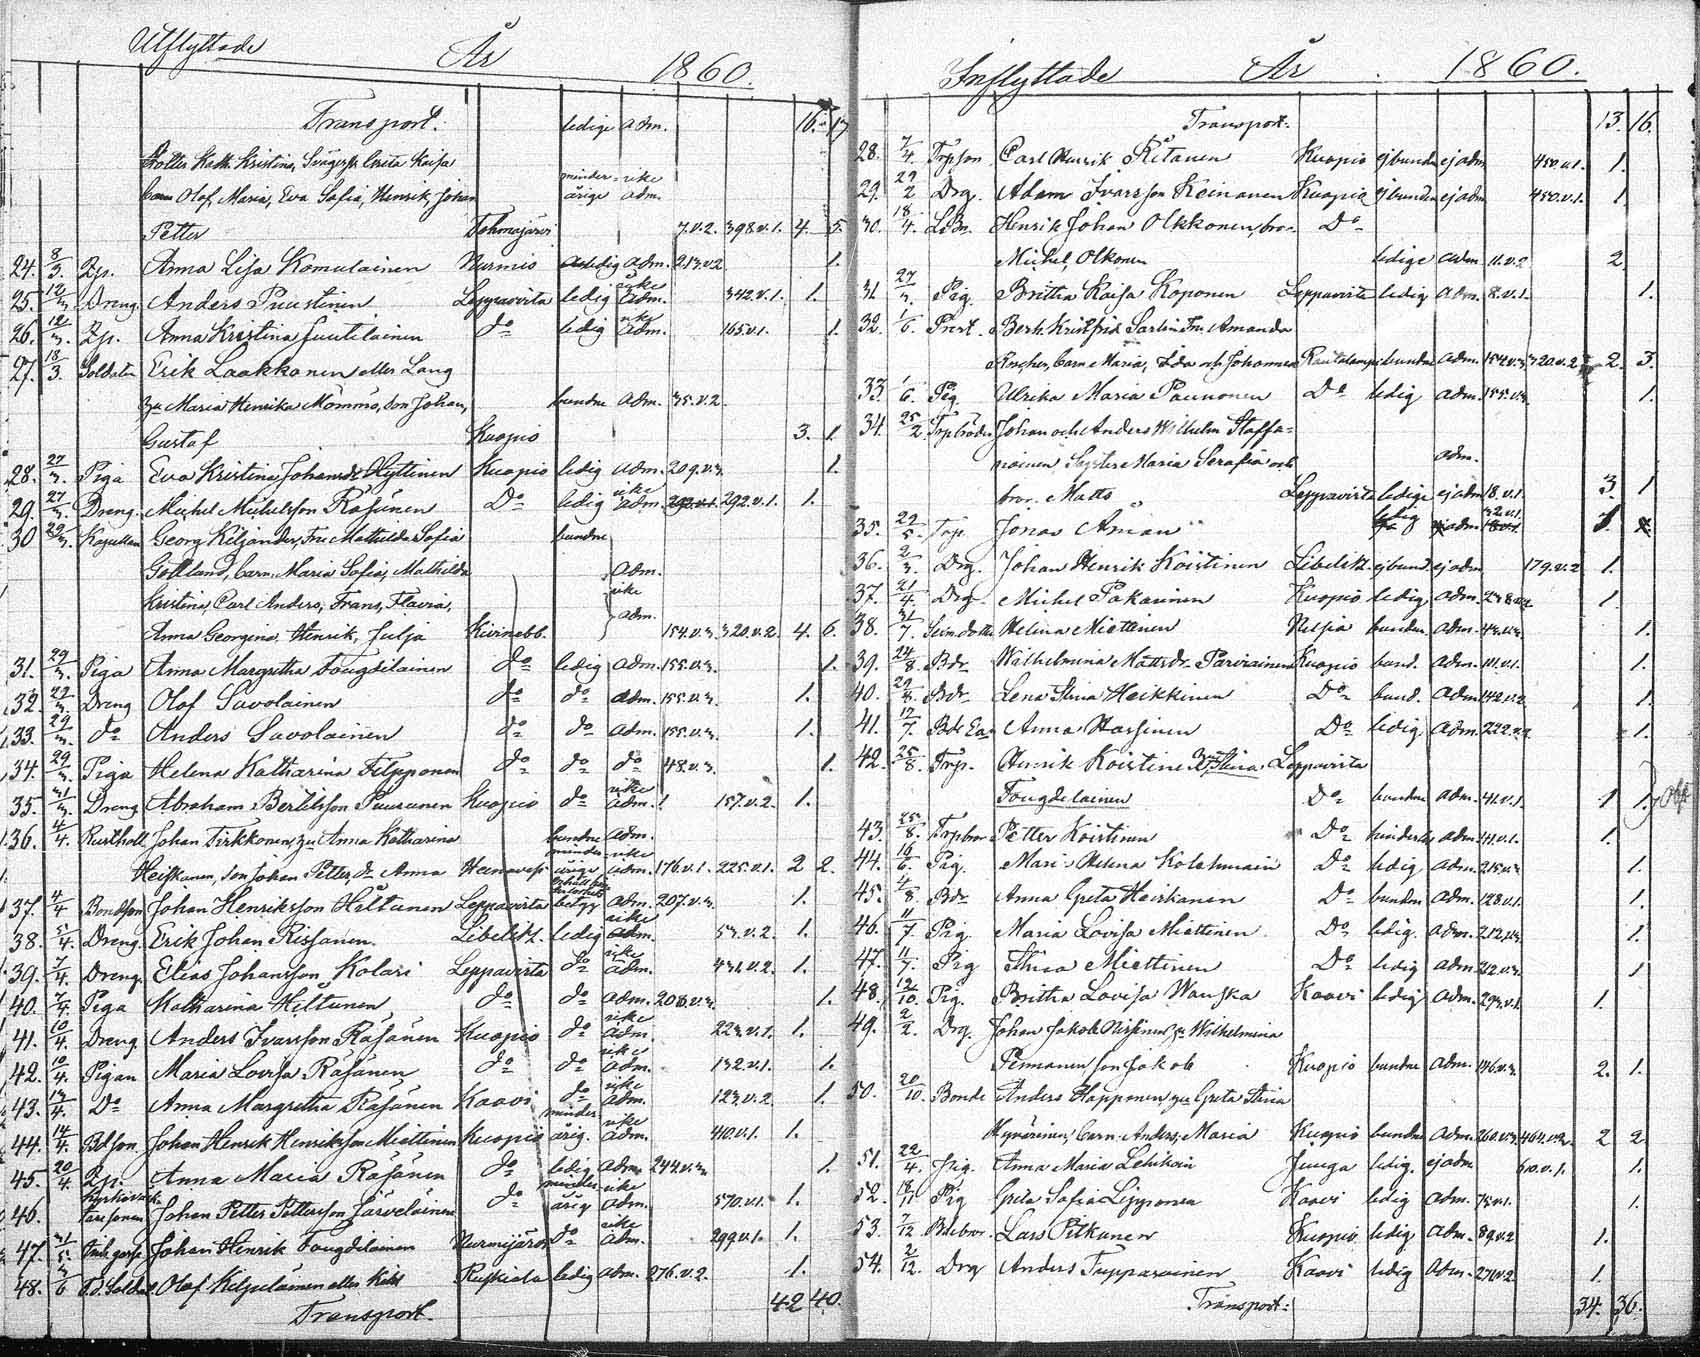 Utflyttade År 1860.
Transport. ledige adm. 16. 17
Kath. Kristina, Greta Kaisa
barn Olof, Maria, Eva Sofia, Henrik, Johan minder-årige icke adm.
Petter Tohmajärvi 7.v.2. 398.v.1. 4. 5.
24. 8/3. Anna Lisa Komulainen Nurmis ledig adm. 213.v.2 1.
25. 12/3 Dreng Anders Puustinen Leppävirta ledig icke adm. 342.v.1. 1.
26. 12/3. Anna Kristina do ledig icke adm. 165.v.1. 1.
27. 18/3. Soldaten Erik Laakkonen eller Lang
Maria Henrika Mömmö, son Johan, bundne adm. 35.v.2.
Gustaf Kuopio 3. 1.
28. 27/3. Piga Eva Kristina Johansdr Hyttinen Kuopio ledig adm. 209.v.3. 1.
29. 27/3. Dreng. Michel Michelsson Räsänen Do ledig icke adm. 292.v.1. 1.
30 29/3. Kapellan Georg Kiljander, Fru Mathilda Sofia bundne
Gottlund, barn. Maria Sofia, Mathilda adm.
Kristina, Carl Anders, Frans, Flavia, icke
Anna Georgina, Henrik, Julja Kivinebb. adm. 154.v.3. 320.v.2. 4. 6.
31. 29/3. Piga Anna Margretha Fougdilainen do ledig adm. 155.v.3. 1.
32. 29/3. Dreng Olof Savolainen do do adm. 155.v.3. 1.
33. 29/3. do Anders Savolainen do do adm. 155.v.3. 1.
34. 29/3. Piga Helena Katharina Filpponen do do do 48.v.3. 1.
35. 31/3. Dreng Abraham Bertilsson Suuronen Kuopio do icke adm. 157.v.2. 1.
36. 4/4. Rusthåll Johan Tirkkonen, Anna Katharina bundne adm.
Heiskanen, son Johan Petter, dr Anna Heinavesi minder-årige icke adm. 176.v.1. 225.v.1. 2 2.
37. 4/4 Bondson Johan Henriksson Hiltunen Leppavirta betyg adm. 207.v.3. 1.
38. 5/4. Dreng. Erik Johan Rissanen. Libelitz. ledig icke adm. 53.v.2. 1.
39. 7/4. Dreng. Elias Johansson Kolari Leppavirta do icke adm. 431.v.2. 1.
40. 7/4. Piga Katharina Hiltunen do do adm. 206.v.3. 1.
41. 10/4. Dreng. Anders Ivarsson Räsänen Kuopio do icke adm. 223.v.1. 1.
42. 10/4. Pigan Maria Lovisa Räsänen do do icke adm. 132.v.1. 1.
43. 13/4. Do Anna Margretha Räsänen Kaavi do icke adm. 123.v.2. 1.
44. 14/4. Bdson Johan Henrik Henriksson Miettinen Kuopio minder-årig. icke adm. 410.v.1. 1.
45. 20/4. Anna Maria Räsänen do ledig adm. 244.v.3. 1.
46. Johan Petter Pettersson Järveläinen do minder-årig icke adm. 570.v.1. 1.
47. Johan Henrik Fougdelainen Nurmijärvi do icke adm. 299.v.1. 1.
48. 3/6 Olof Kiljulainen eller Kihl Ruskiala ledig adm. 276.v.2. 1.
Transport. 42 40.
Inflyttade År 1860.
Transport. 13. 16.
28. 7/4. Trpson Carl Henrik Ritanen Kuopio ej bunden ej adm 450.v.1. 1.
29. 29/2 Drg. Adam Ivarsson Keinanen Kuopio ej bunden ej adm 450.v.1. 1.
30. 18/4. Henrik Johan Olkkonen, bro- Do
Michel, Olkonen ledige adm 11.v.2 2.
31. 27/3. Pig. Britha Kaisa Koponen Leppavirta ledig adm. 8.v.1. 1.
32. 1/6. Prest. Bernh. Kristfrid Sarlin Fru Amanda
Roscher, barn Maria, Ida och Johannes Rautalampi bundne adm. 154.v.3. 320.v.2 2. 3.
33. 1/6. Pig Ulrika Maria Paunonen Do ledig adm. 155.v.3. 1.
34. 25/2. Trpbröder Johan och Anders Wilhelm Staffa-
noinen, Syster Maria Serafia och adm.
bror. Matts Leppavirta ledige ej adm 18.v.1. 3. 1
35. 29/5. Trp Jonas Åman ledig adm 32.v.1. 1.
36. 2/3. Drg. Johan Henrik Koistinen Libelitz. ej bund. ej adm 179.v.2 1.
37. 21/4. Drg. Michel Pakarinen Kuopio ledig adm. 1.
38. 31/7. Helena Miettinen Nilsia bunden adm. 43.v.3. 1.
39. 24/8. Bdr Wilhelmina Mattsdr. Parviainen Kuopio bund. adm. 111.v.1. 1.
40. 29/3. Bdr Lena Stina Heikkinen Do bund. adm 142.v.2 1.
41. 12/7. Bdr Anna Hassinen Do ledig adm. 222.v.2. 1.
42. 25/8. Trp. Henrik Koistinen Stina Leppavirta
Fougdelainen Do bundne adm. 41.v.1. 1 1.
43. 25/8. Trpbror Petter Koistinen Do adm. 41.v.1. 1.
44. 16/6. Pig. Mari Helena Kolehmain Do ledig adm. 215.v.3. 1.
45. 4/8. Bdr Anna Greta Heiskanen Do bunden adm. 128.v.1. 1.
46. 11/7. Pig Maria Lovisa Miettinen Do ledig. adm. 212.v.3. 1.
47. 11/7. Pig Stina Miettinen Do ledig adm 212.v.3. 1
48. 12/10. Pig. Britha Lovisa Wauska Kaavi ledig adm. 293.v.1. 1.
49. 2/2. Drg. Johan Jakob Nissinen Wilhelmina
Pennanen son Jakob Kuopio bundne adm. 146.v.3. 2. 1.
50. 20/10. Bonde Anders Happonen, Greta Stina
Hynäninen, barn. Anders, Maria Kuopio bundne adm. 260.v.3. 464.v.2. 2 2
51. 22/4. Pig. Anna Maria Lehikoin Juuga ledig. ej adm 60.v.1. 1.
52. 18/11 Pig Greta Sofia Lipponen Kaavi ledig adm. 75.v.1. 1.
53. 7/12 Bdebror. Lars Pitkanen Kuopio ledig adm. 89.v.2 1.
54. 2/12. Drg Anders Tupparainen Kaavi ledig adm. 271.v.2 1.
Transport. 34. 36.